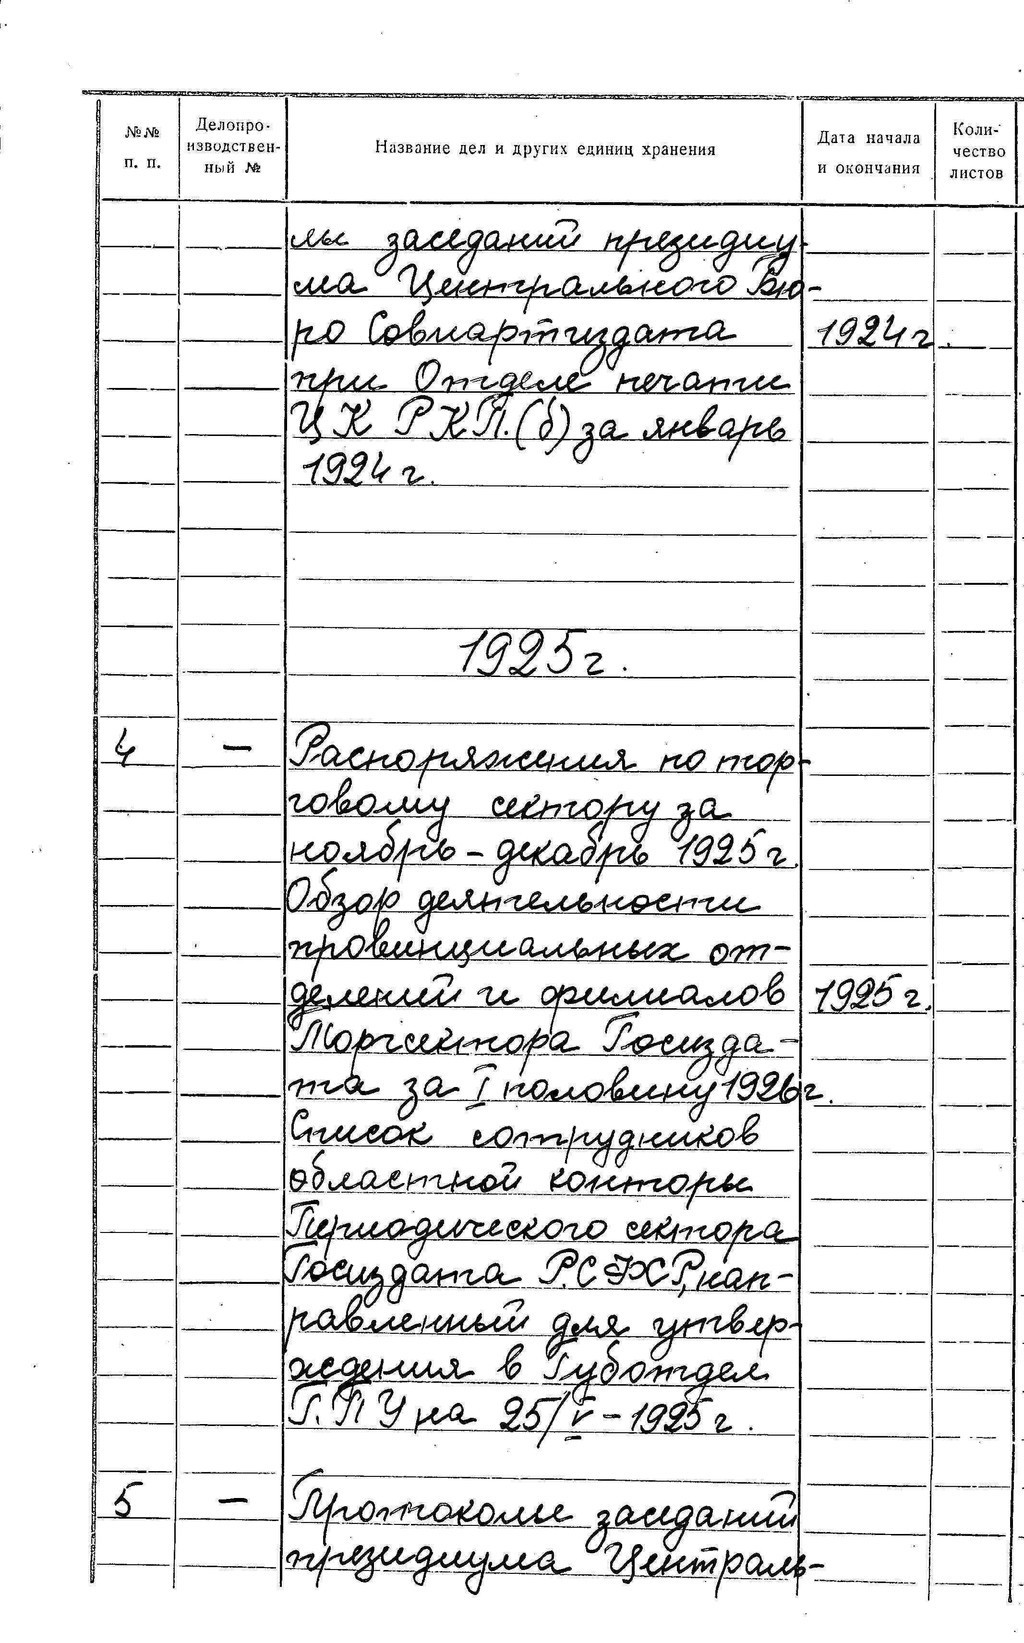 №№ п. п.
Делопро-
изводствен-
ный №
Название дел и других единиц хранения
Дата начала
и окончания
Коли-
чество
листов
лы заседаний президиу-
ма Центрального Бю-
ро Совпартиздата 1924 г.
при Отделе печати
ЦК РКП.(б) за январь
1924 г.
1925 г.
4 — Распоряжения по тор-
говому сектору за
ноябрь – декабрь 1925 г.
Обзор деятельности
провинциальных от-
делений и филиалов 1925 г.
Торгсектора Госизда-
та за I половину 1926 г.
Список сотрудников
областной конторы
Периодического сектора
Госиздата Р.С.Ф.С.Р., нап-
равленный для утвер-
ждения в Губотдел
Г.П.У на 25/V – 1925 г.
5 — Протоколы заседаний
президиума Централь-